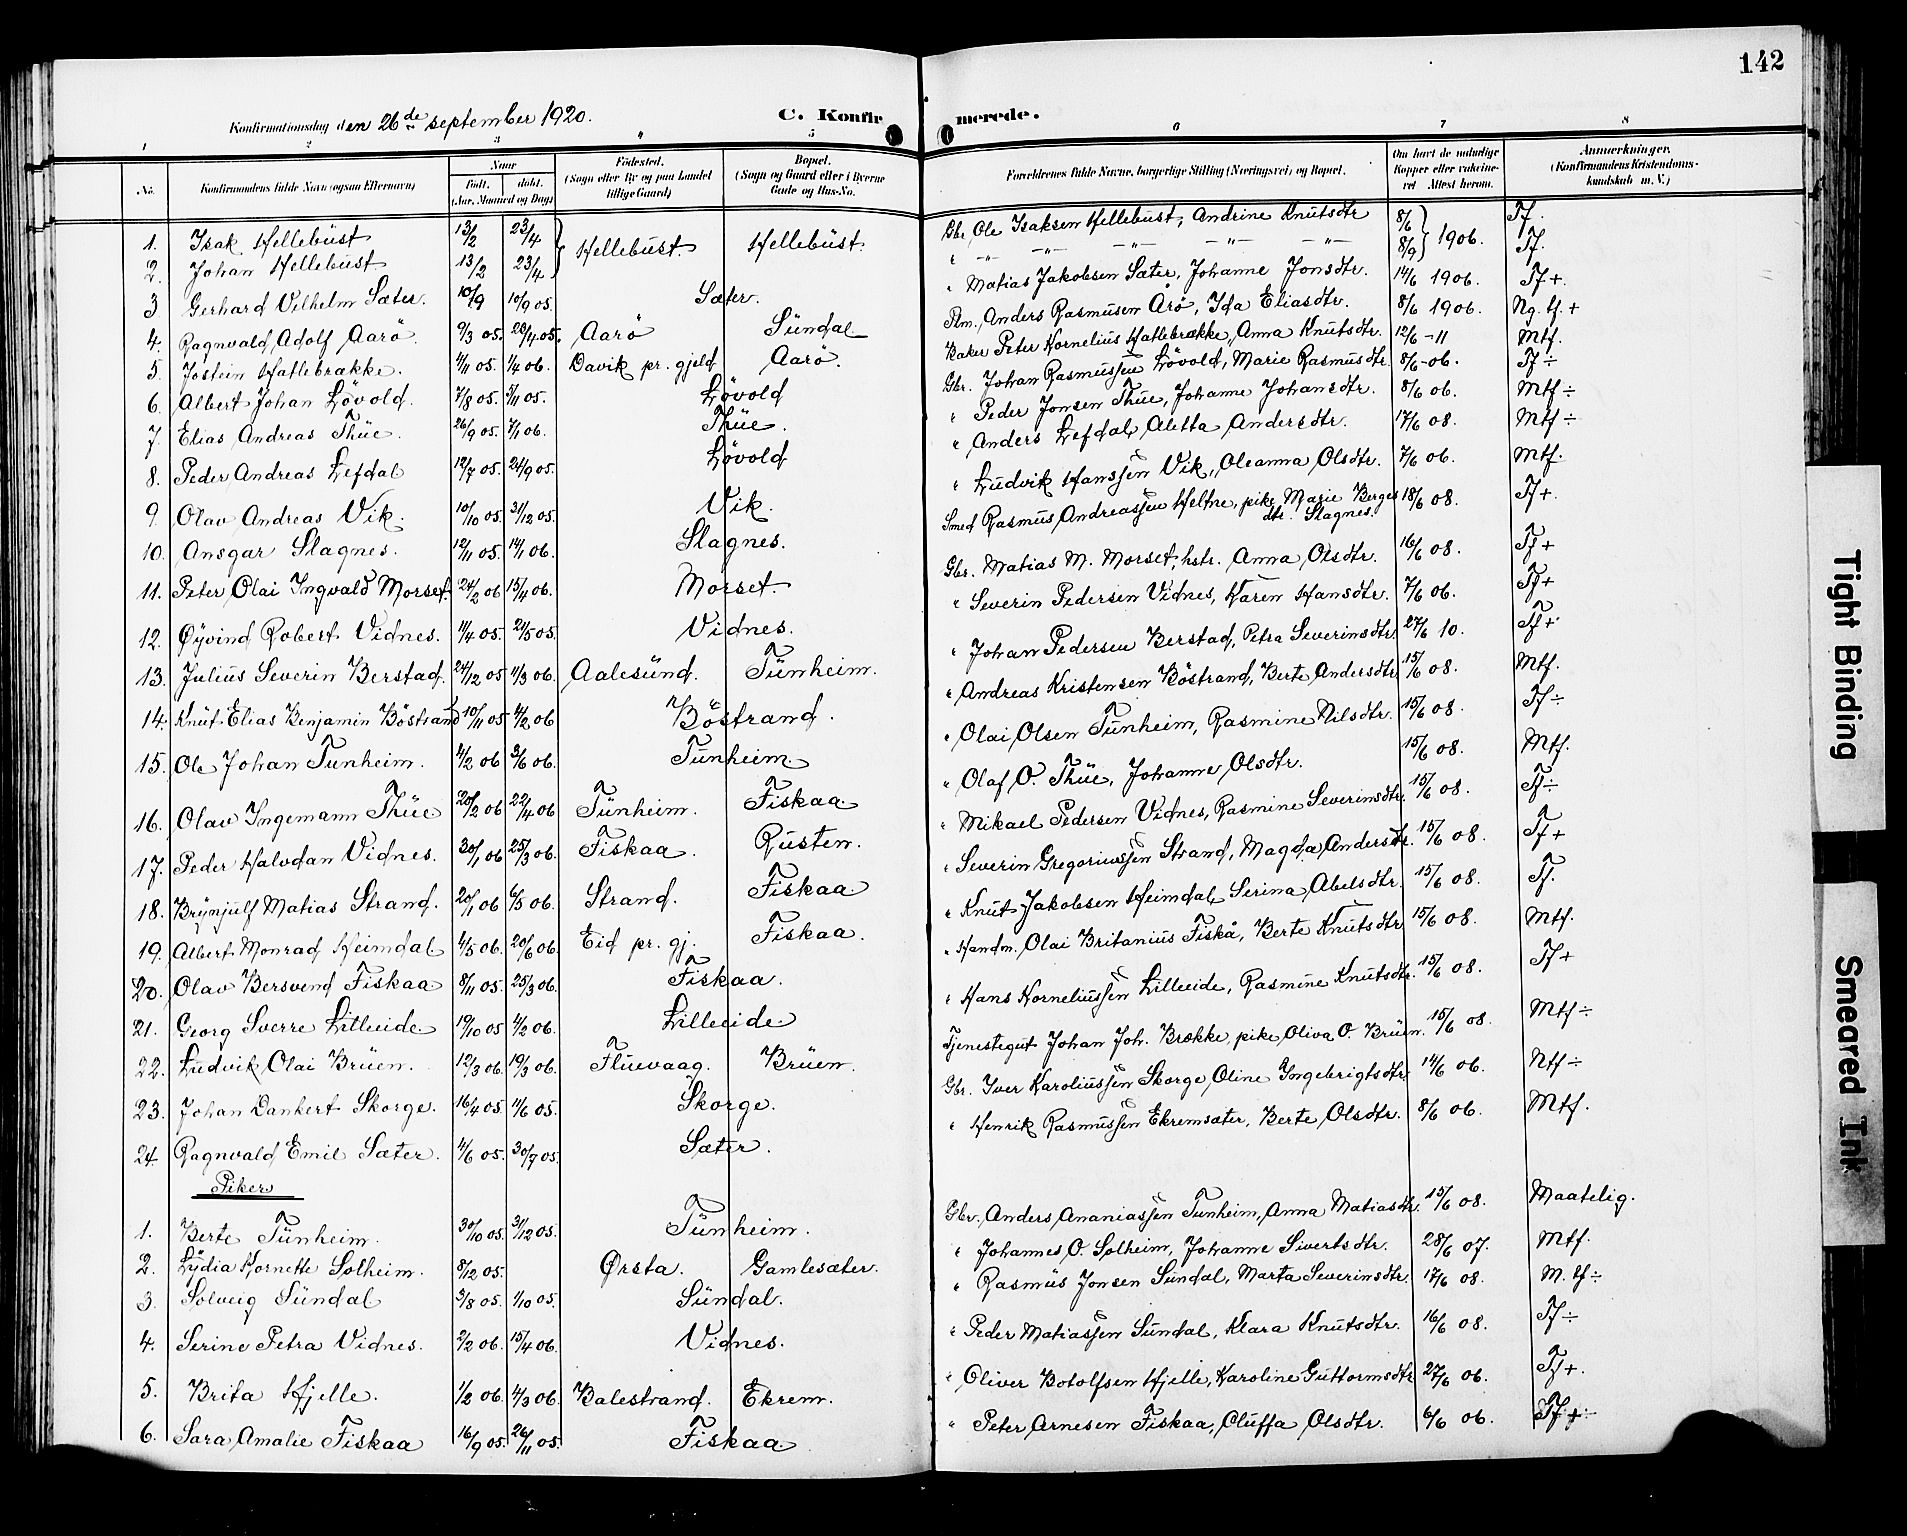 142
Konfirmationsdag den 26de september 1920. C. Konfirmerede.
1 2 3 " 5 6 7 8
No. Konfirmandens fulde Navn (ogsaa Efternavn) Naar født. døbt. (Aar, Maaned og Dag) Fødested. (Sogn eller By og paa Landet tillige Gaard) Bopæl. (Sogn og Gaard eller i Byerne Gade og Hus-No. Forældrenes fulde Navne, borgerlige Stilling (Næringsvei) og Bopæl. Om havt de naturlige Kopper eller vaccineret Attest herom. Anmerkninger. (Konfirmandens Kristendomskundskab m. V.)
1. Isak Hellebüst 13/2 23/4 } Hellebüst. Hellebüst. Gbr. Ole Isaksen Hellebüst, Andrine Knütsdtr 8/6 } 1906. Tf.
2. Johan Hellebüst 13/2 23/4 " -"- -"- -"- -"- 8/9 Tf.
3 Gerhard Vilhelm Sæter. 10/9 10/9 05. Sæter. " Matias Jakobsen Sæter, Johanne Jonsdtr. 14/6 1906. Tf +.
4. Ragnvald Adolf Aarö. 9/3 05. 28/4 05. Aarö Sündal Plm. Anders Rasmusen Arö, Ida Eliasdtr. 8/6 1906. Ng. tf. +
5. Jostein Hatlebrække. 4/11 05. 1/4 06. Davik pr. gjeld Aarö. Baker Peter Kornelius Hatlebrække, Anna Knutsdtr. 12/6 - 11 Mtf.
6. Albert Johan Lövold. 7/8 05. 5/11 05. Lövold Gbr. Johan Rasmussen Lövold, Marie Rasmusdtr. 8/6 - 06. Tf ÷
7. Elias Andreas Thüe. 26/9 05. 7/1 06. Thüe. " Peder Jonsen Thüe, Johanne Johansdtr. 8/6 06. Mtf ÷
8. Peder Andreas Lefdal 12/7 05. 24/9 05. Lövold " Anders Lefdal, Aletta Andersdtr. 17/6 08. Mtf ÷
9. Olav Andreas Vik. 10/10 05. 31/12 05. Vik. " Lüdvik Hanssen Vik, Oleanna Olsdtr. 7/6 06. Mtf.
10. Ansgar Slagnes. 12/11 05. 14/1 06. Slagnes. Smed Rasmüs Andreassen Heltne, pike Marie Bergesdtr. Slagnes. 18/6 08. Tf +.
11. Peter Olai Ingvald Morset. 24/2 06 15/4 06. Morset. Gbr. Matias M. Morset, hstr. Anna Olsdtr. 16/6 08. Tf +
12. Øyvind Robert Vidnes. 11/4 05. 21/5 05. Vidnes. " Severin Pedersen Vidnes, Karen Hansdtr. 7/6 06. Tf +
13. Jülius Severin Berstad. 24/12 05 11/3 06. Aalesünd. Tünheim. " Johan Pedersen Berstad, Petra Severinsdtr. 27/6 10. Tf +
14. Knüt Elias Benjamin Böstrand 10/11 05 4/2 06 Böstrand. " Andreas Kristensen Böstrand, Berte Andersdtr. 15/6 08. Mtf.
15. Ole Johan Tünheim. 4/2 06 3/6 06. Tünheim. " Olai Olsen Tünheim, Rasmine Nilsdtr. 15/6 08. Tf ÷
16. Olav Ingemann Thüe 20/2 06 22/4 06 Tünheim. Fiskaa. " Olaf O. Thüe, Johanne Olsdtr. 15/6 08. Mtf.
17. Peder Halvdan Vidnes. 30/1 06 25/3 06. Fiskaa. Rüsten. " Mikael Pedersen Vidnes, Rasmine Severinsdtr. 15/6 08. Tf ÷
18. Brynjulf Matias Strand. 20/1 06 6/5 06. Strand. Fiskaa. " Severin Gregoriussen Strand, Magda Andersdtr. 15/6 08. Tf +
19. Albert Monrad Heimdal 4/5 06. 20/6 06. Eid pr. gj. Fiskaa. " Knüt Jakobsen Heimdal, Serina Abelsdtr. 15/6 08. Tf.
20. Olav Bersvend Fiskaa 8/11 05. 25/3 06. Fiskaa. " Handm. Olai Britaniüs Fiskå, Berte Knütsdtr. 15/6 08. Mtf.
21. Georg Sverre Lilleeide. 19/10 05 4/2 06. Lilleeide. " Hans Korneliussen Lilleeide, Rasmine Knütsdtr. 15/6 08. Tf +
22. Lüdvik Olai Brüen. 12/3 06. 19/3 06. Flüevaag. Brüen. Tjenestegut Johan Joh. Brække, pike Oliva O. Brüen. 15/6 08. Mtf ÷
23. Johan Dankert Skorge. 16/4 05. 11/6 05. Skorge. Gbr. Iver Karoliussen Skorge, Oline Ingebrigtsdtr. 14/6 06. Ntf ÷
24. Ragnvald Emil Sæter. 4/6 05. 30/7 05. Sæter. " Henrik Rasmussen Ekremsæter, Berte Olsdtr. 8/6 06. Mtf.
Piker
1. Berte Tünheim. 30/10 05. 31/12 05. Tünheim. Gbr. Anders Ananiassen Tunheim, Anna Matiasdtr. 15/6 08. Maatelig.
2. Lydia Kornette Solheim. 8/12 05. Ørsta. Gamlesæter. " Johannes O. Solheim, Johanne Sivertsdtr. 28/6 07. Mtf.
3. Solveig Sündal 3/8 05. 1/10 05. Sündal. " Rasmüs Jonsen Sündal, Marta Severinsdtr. 17/6 08. M. tf ÷
4. Serine Petra Vidnes. 2/2 06. 15/4 06. Vidnes. " Peder Matiassen Sündal, Klara Knütsdtr. 16/6 08. Tf ÷
5. Brita Hjelle. 1/2 06. 4/3 06. Balestrand. Ekrem. " Oliver Botolfsen Hjelle, Karoline Guttormsdtr 27/6 06. Tf +.
6. Sara Amalie Fiskaa 16/9 05. 26/11 05. Fiskaa. " Peter Arnesen Fiskaa, Oluffa Olsdtr. 6/6 06. Tf +
Tight Binding
Smeared Ink